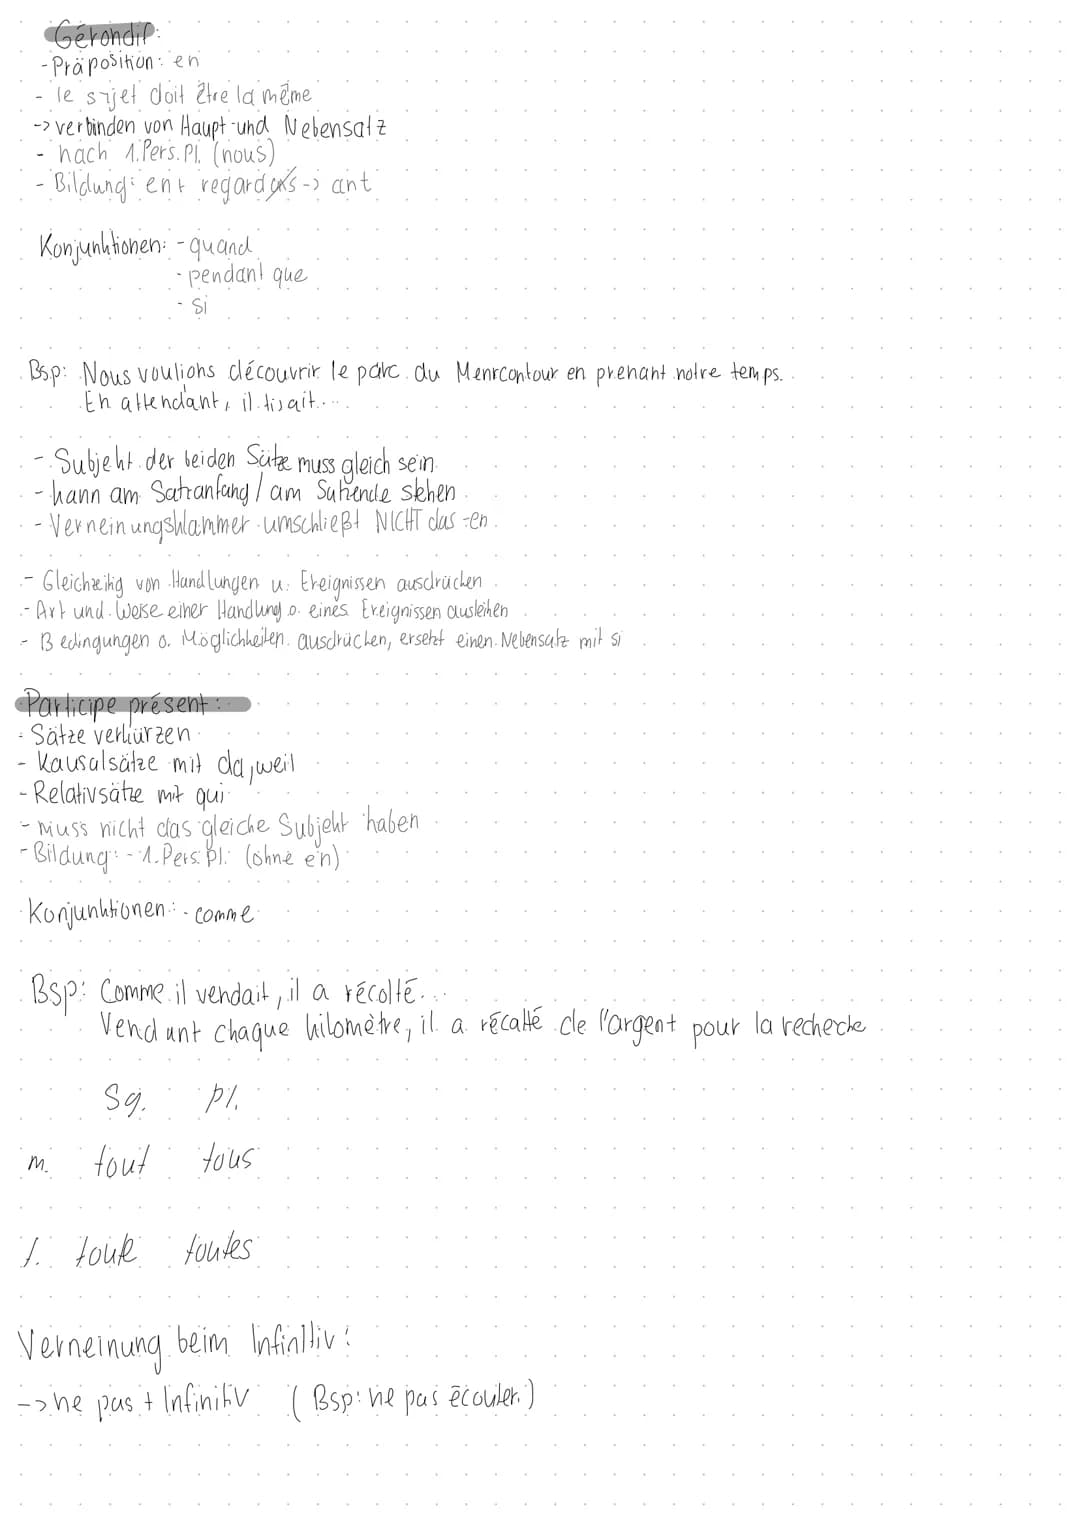 Gérondif:
- Präposition: en
- le sujet doit être la même
-> verbinden von Haupt- und Nebensatz
- nach 1. Pers. Pl. (nous)
- Bildung: en + regardons -> ant
Konjunktionen: - quand
- pendant que
- si
Bsp: Nous voulions découvrir le parc du Menrcontour en prenant notre temps.
En attendant, il lisait...
- Subjekt der beiden Sätze muss gleich sein
- kann am Satzanfang / am Satzende stehen
- Verneinungsklammer umschließt NICHT das -en
- Gleichzeitig von Handlungen u. Ereignissen ausdrücken
- Art und Weise einer Handlung o. eines Ereignissen ausleihen
- Bedingungen o. Möglichkeiten ausdrücken, ersetzt einen Nebensatz mit si
Participe présent:
- Sätze verkürzen
- Kausalsätze mit da, weil
- Relativsätze mit qui
- muss nicht das gleiche Subjekt haben
- Bildung: - 1. Pers. Pl. (ohne en)
Konjunktionen: - comme
Bsp: Comme il vendait, il a récolté...
Vendant chaque kilomètre, il a récalté de l'argent pour la recherche
Sg. Pl.
m. tout tous
f. toute toutes
Verneinung beim Infinitiv:
-> ne pas + Infinitiv (Bsp: ne pas écouter)